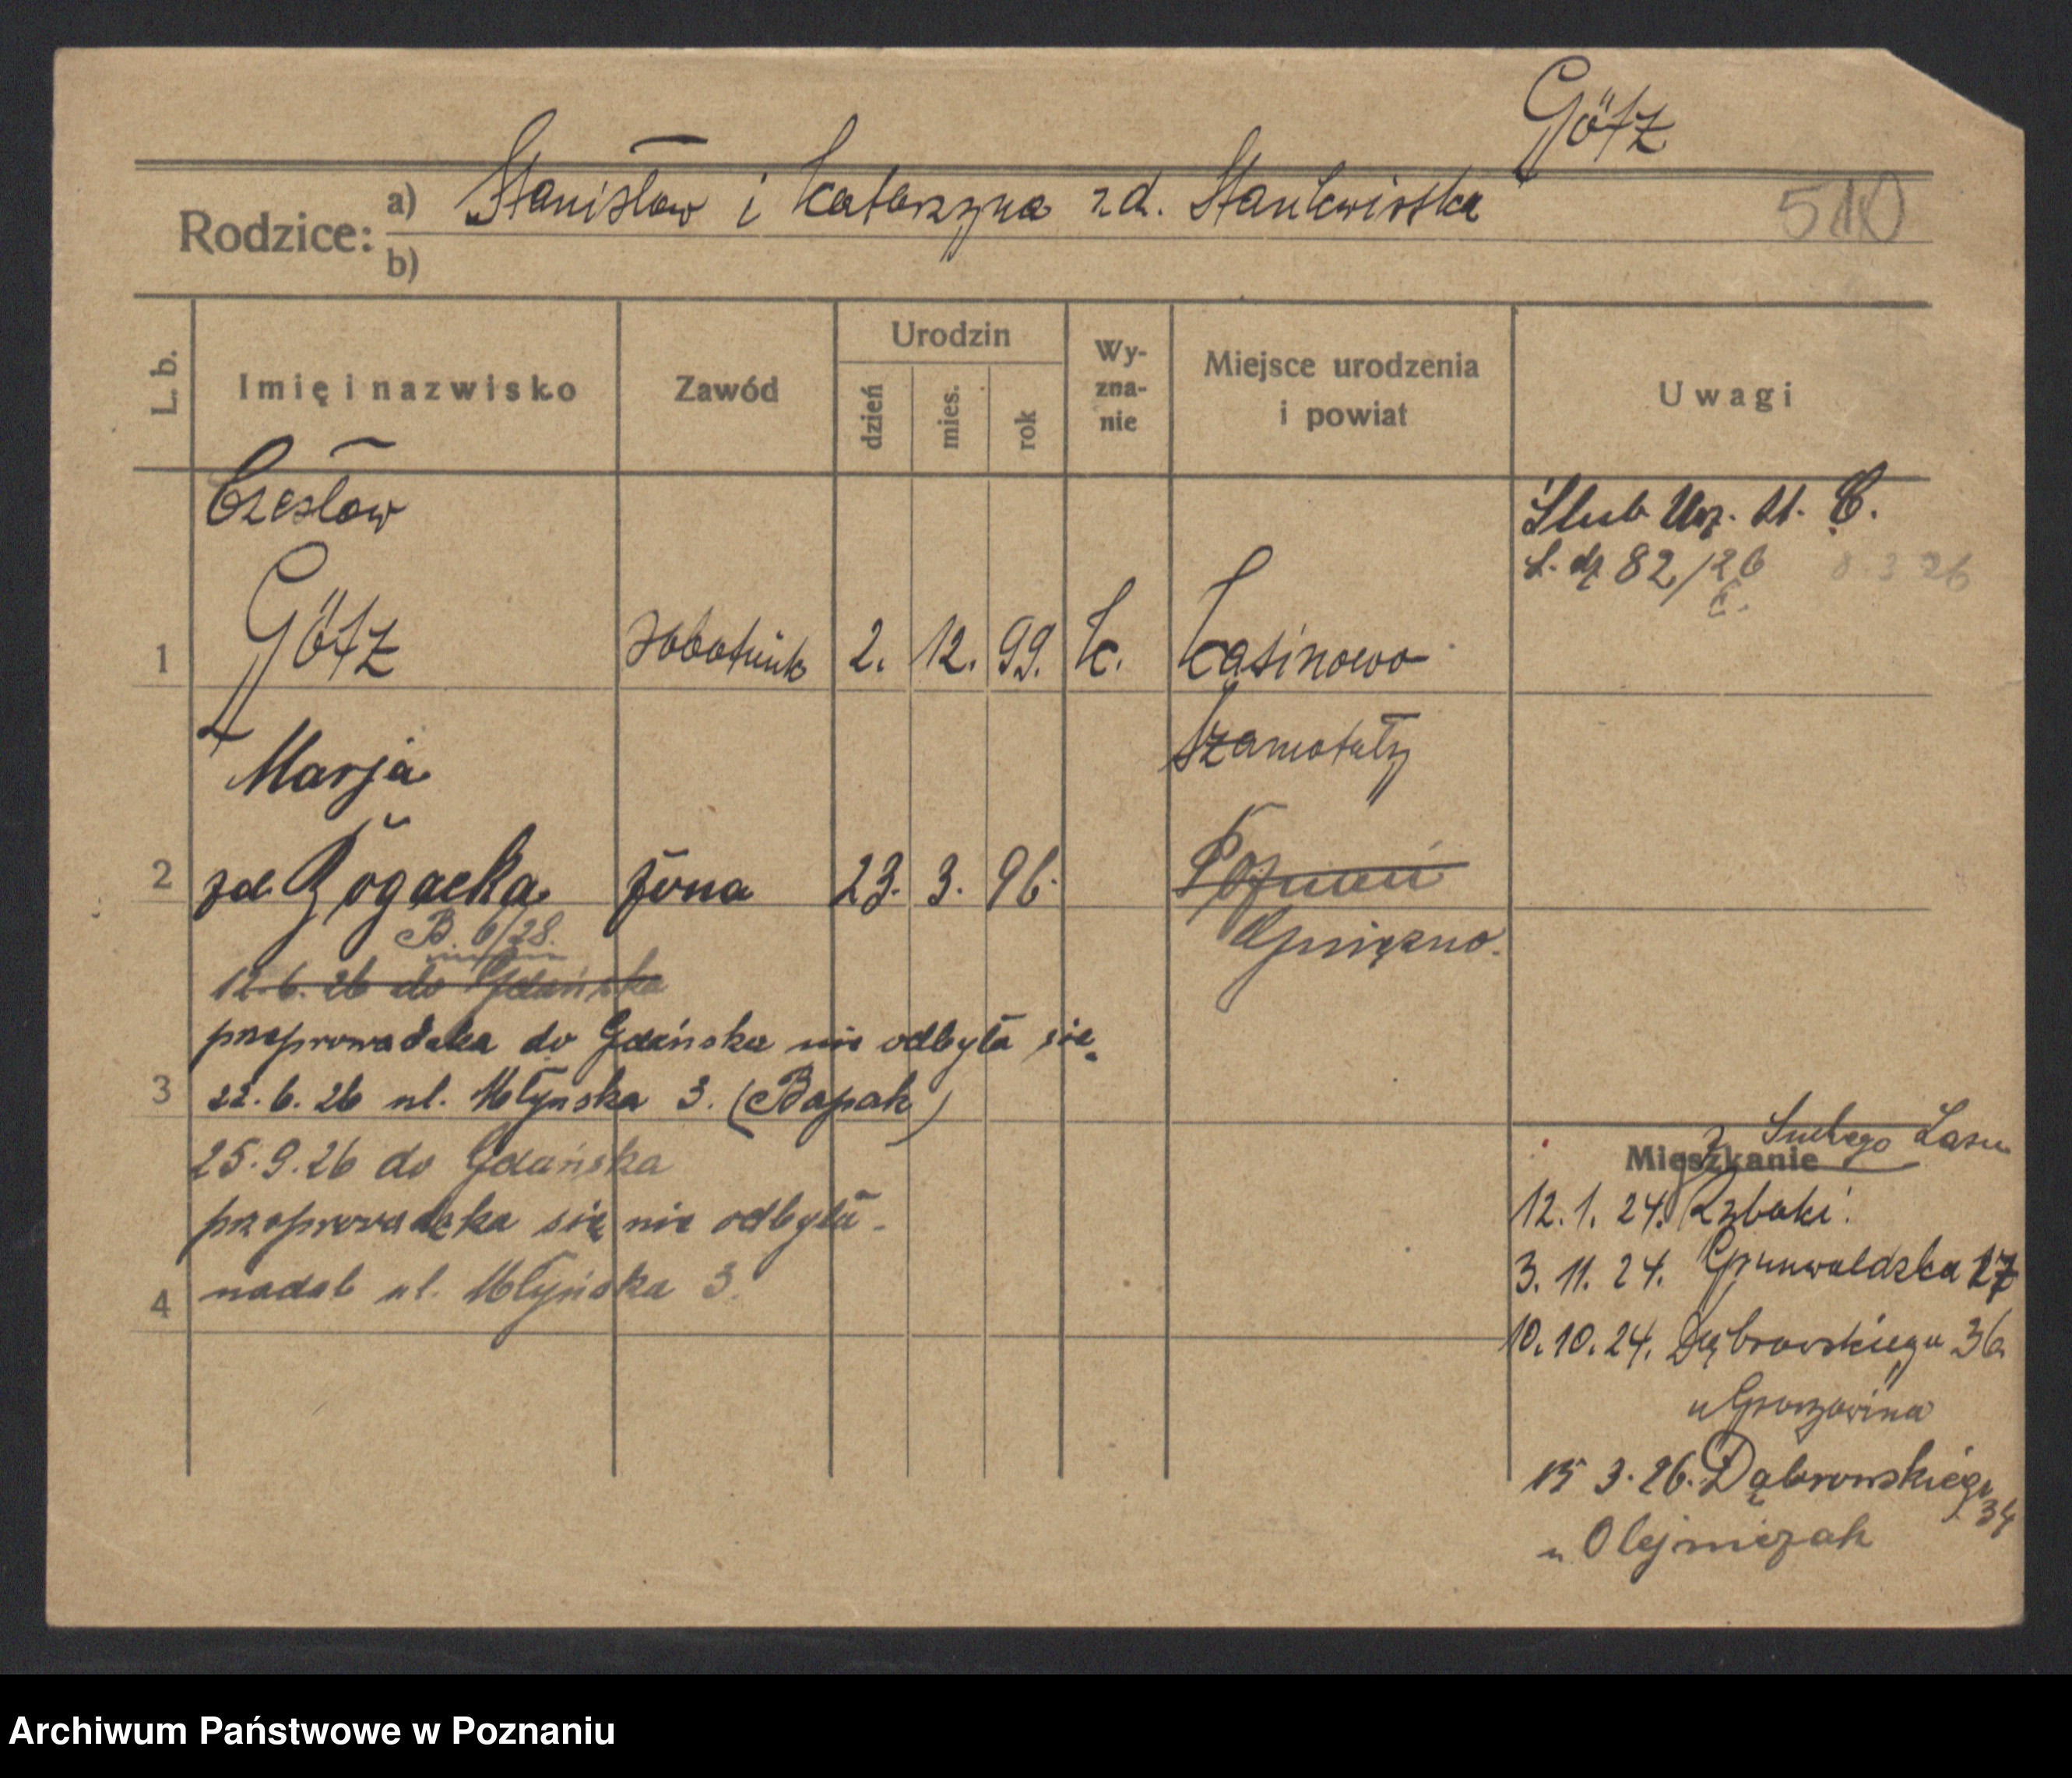 Götz
Rodzice: a) Stanisław i Katarzyna zd. Stankwirska
510
b)
L. b.
Imię i nazwisko
Zawód
Urodzin
dzień
mies.
rok
Wy-
zna-
nie
Miejsce urodzenia
i powiat
Uwagi
Czesław
Ślub Urz. St. C.
L. dz 82/26 8 3 26
1 Götz robotnik 2. 12. 99. k. Kasinowo
Szamotuły
Marja
2 zd. Rogacka żona 23. 3. 96. Poznań
Gniezno.
B. 6/28.
12.6.26 do Gdańska
przeprowadzka do Gdańska nie odbyła się
3 22.6.26 ul. Młyńska 3. (Bapak)
25.9.26 do Gdańska
przeprowadzka się nie odbyła.
4 nadal ul. Młyńska 3.
z Suchego Lasu
Mieszkanie
12.1.24. Rybaki
3.11.24. Grunwaldzka 27
10.10.24. Dąbrowskiego 36
15 3.26. Dąbrowskiego 34
u Olejniczak
Archiwum Państwowe w Poznaniu